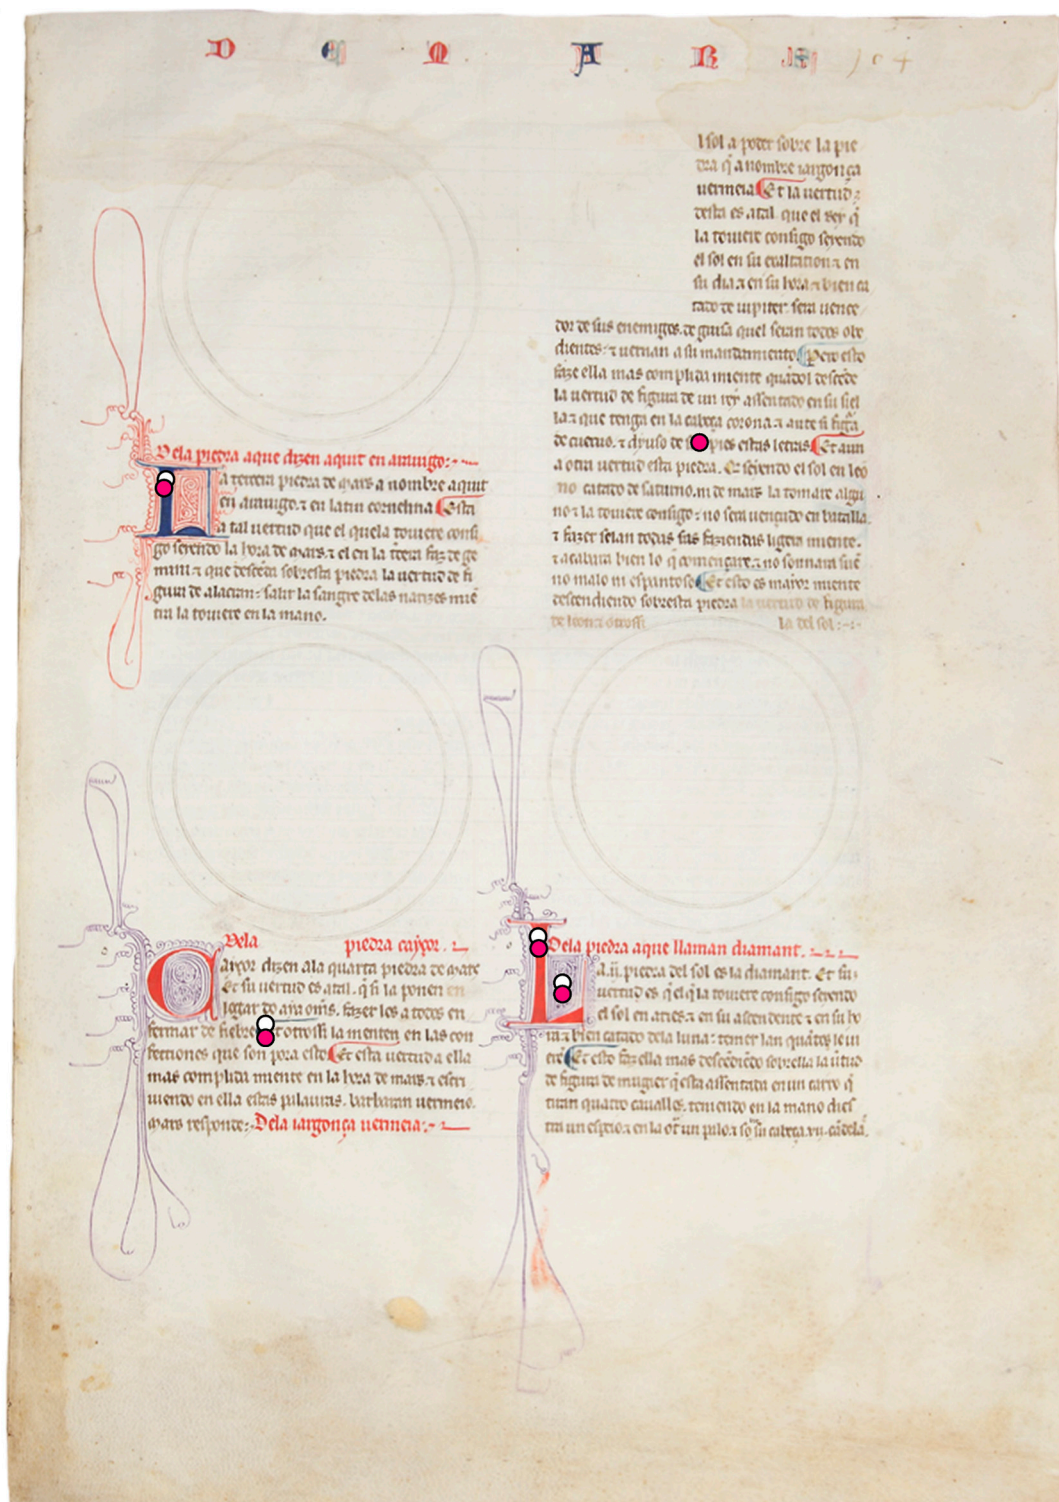 D E M A R T 104
Dela piedra aque dizen aquit en arauigo:-
La tercera piedra de mars a nombre aquit
en arauigo. ⁊ en latin cornelina Esta
a tal uertud que el quela touiere consi
go seyendo la hora de mars. ⁊ el en la tercera faz de ge
mini. ⁊ que descenda sobresta piedra la uertud de fi
gura de alacran: salir la sangre delas narizes mie
tra la touiere en la mano.
Dela piedra cayxor.
Cayxor dizen ala quarta piedra de mars
Et su uertud es atal. q̃ si la ponen en
logar do aya om̃s. fazer les a todos en
fermar de fiebre otrossi la menten en las con
fectiones que son pora esto Et esta uertud a ella
mas complida miente en la hora de mars. ⁊ escri
uiendo en ella estas palauras. barbaran uermeio.
mars responde:- Dela iargonça uermeia:-
l sol a poder sobre la pie
dra q̃ a nombre iargonça
uermeia Et la uertud
desta es atal. que el rey q̃
la touiere consigo seyendo
el sol en su exaltation ⁊ en
su dia ⁊ en su hora ⁊ bien ca
tado de iupiter. sera uence
dor de sus enemigos. de guisa quel seran todos obe
dientes: ⁊ uernan a su mandamiento Pero esto
faze ella mas complida miente quãdol descẽde
la uertud de figura de un rey assentado en su siel
la: ⁊ que tenga en la cabeça corona: ⁊ ante si figã
de cueruo. ⁊ dyuso de pies estas letras Et aun
a otra uertud esta piedra. Que seyendo el sol en leõ
no catado de saturno. ni de mars la tomare algu
no: ⁊ la touiere consigo: no sera uençudo en batalla.
⁊ fazer selan todas sus faziendas ligera miente.
⁊ acabara bien lo q̃ començare. ⁊ no sonnara sue
no malo ni espantoso Et esto es mayor miente
descendiendo sobresta piedra la uertud de figura
de leon: ⁊ otrossi la del sol:-
Dela piedra aque llaman diamant.
La .ii. piedra del sol es la diamant. Et su
uertud es q̃ el q̃ la touiere consigo seyendo
el sol en aries. ⁊ en su ascendente ⁊ en su ho
ra ⁊ bien catado dela luna: temer lan quãtos le ui
erẽ Et esto faz ella mas descẽdiẽdo sobrella la ũtud
de figura de mugier q̃ esta assentada en un carro q̃
tiran quatro cauallos. teniendo en la mano dies
tra un espeio: ⁊ en la ot̃ un palo: ⁊ sob̃ su cabeça .vii. cãdelã.